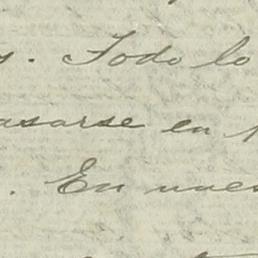 . Todo lo
asarse en
. En nues